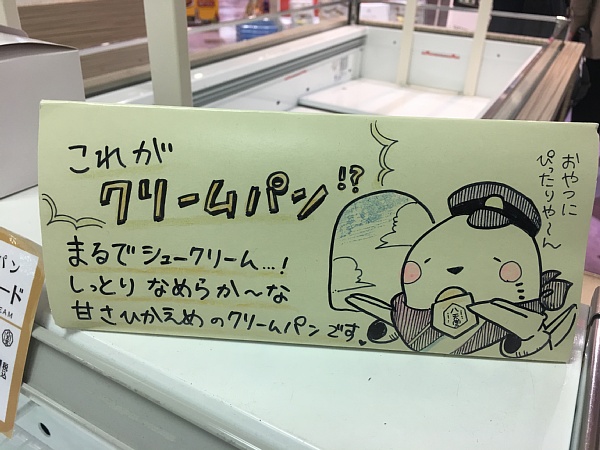 これが
クリームパン!?
まるでシュークリーム…!
しっとり なめらか〜な
甘さひかえめのクリームパンです♥
おやつに
ぴったりや〜ん
八天堂
パン
ード
EAM
税込